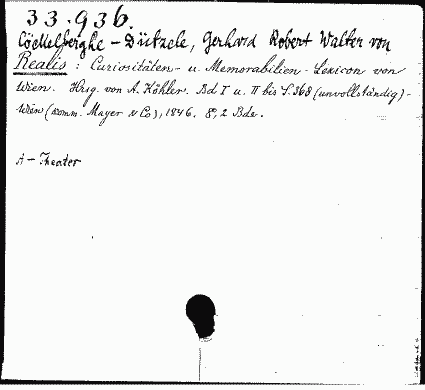 33.936.
Cöckelberghe - Dützele, Gerhard Robert Walter von
Realis : Curiositäten- u. Memorabilien-Lexicon von
Wien. Hrsg. von A. Köhler. Bd I u. II bis S. 368 (unvollständig) -
Wien (komm. Mayer & Co), 1846. 8°, 2 Bde.
A - Theater